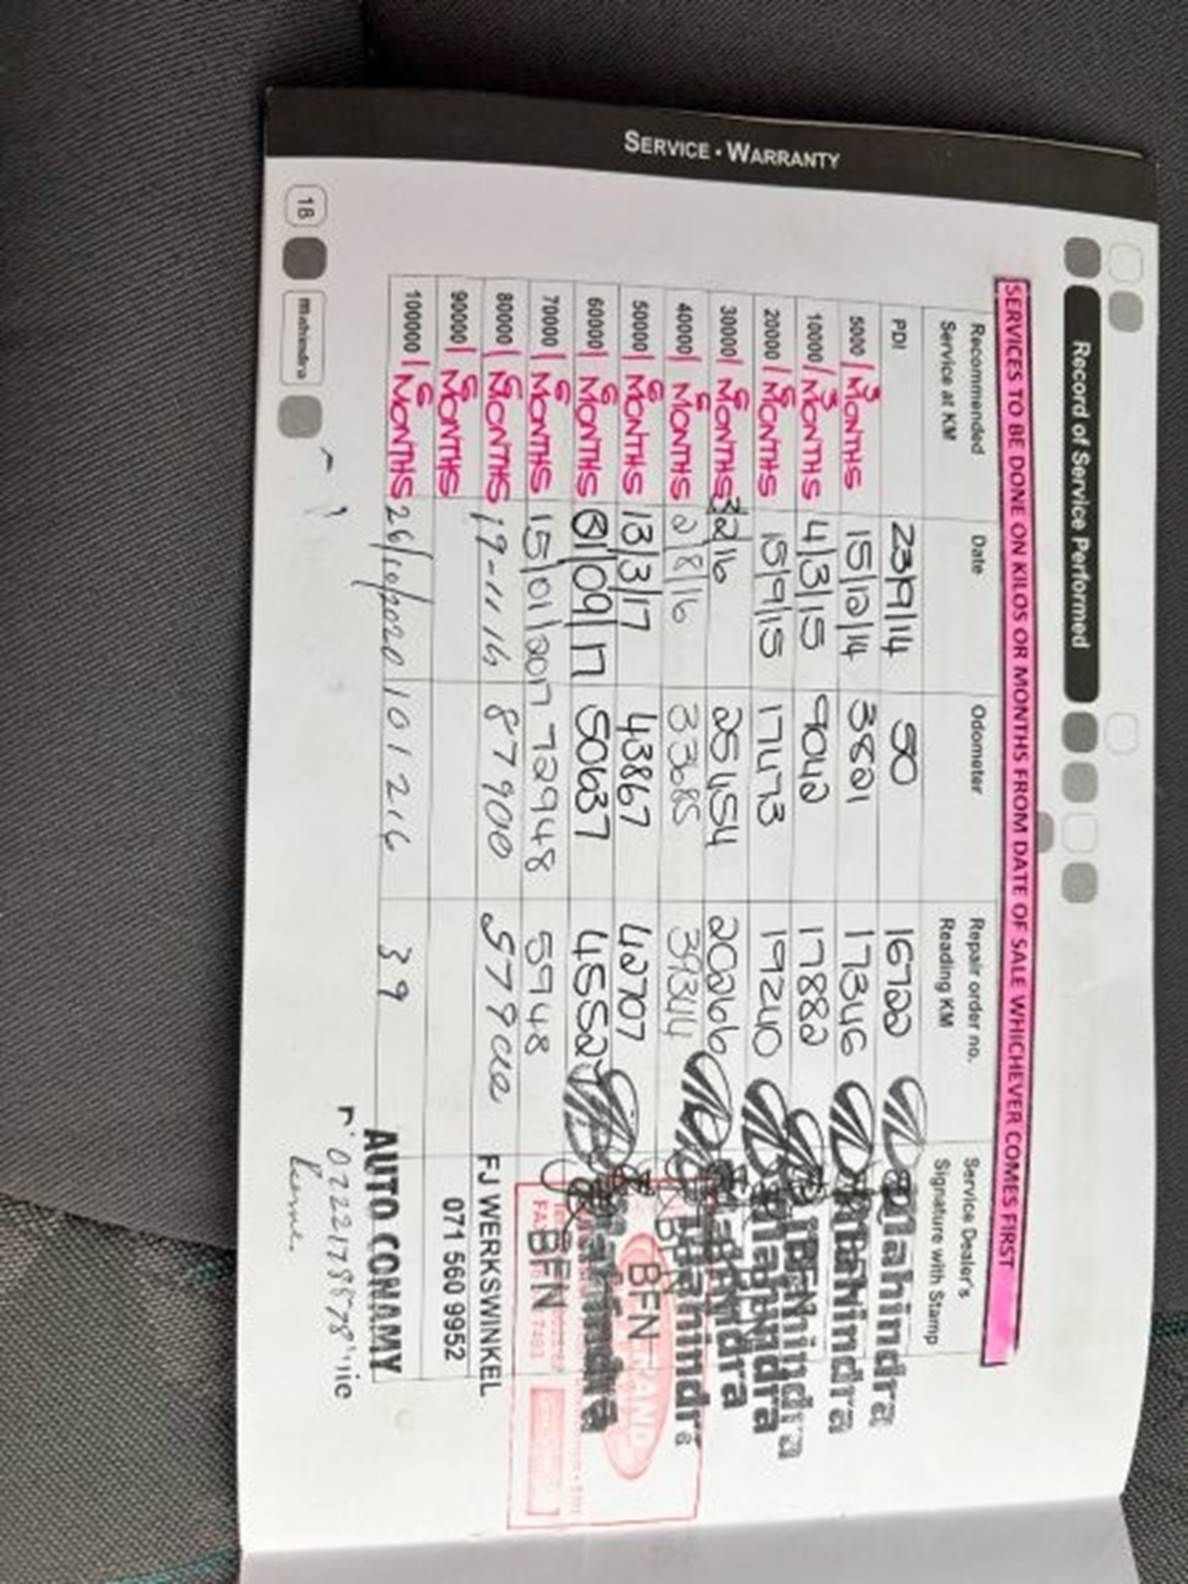 SERVICE • WARRANTY
Record of Service Performed
SERVICES TO BE DONE ON KILOS OR MONTHS FROM DATE OF SALE WHICHEVER COMES FIRST
Recommended Service at KM Date Odometer Repair order no. Reading KM Service Dealer's Signature with Stamp
PDI 23/9/14 50 16722 Mahindra
5000 / 3 MONTHS 15/12/14 3821 17346 Mahindra
10000 / 3 MONTHS 4/3/15 9042 17882 Mahindra BFN
20000 / 6 MONTHS 15/9/15 17473 19240 Mahindra
30000 / 6 MONTHS 3/2/16 25454 20266 Mahindra
40000 / 6 MONTHS 2/8/16 33685 39344 Mahindra
50000 / 6 MONTHS 13/3/17 43867 42707 BFN
60000 / 6 MONTHS 01/09/17 50637 4552 Mahindra
70000 / 6 MONTHS 15/01/2017 72948 5948 BFN
80000 / 6 MONTHS 19-11-16 87900 FJ WERKSWINKEL
90000 / 6 MONTHS 071 560 9952
100000 / 6 MONTHS 26/10/2020 101216 39 AUTO CONAMY
0722178578
18 mahindra